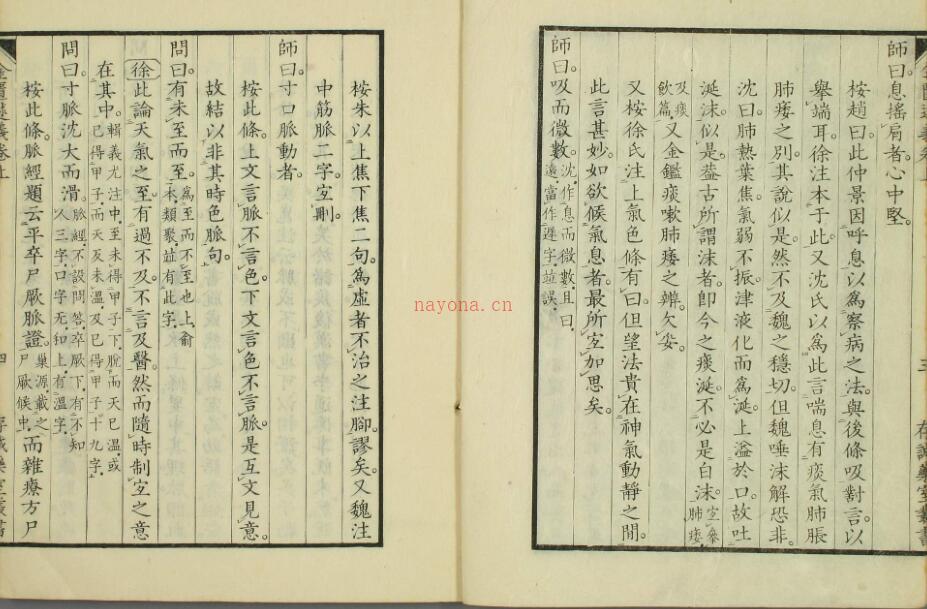 師曰。息搖肩者。心中堅。
桉趙曰此仲景因呼息以爲察病之法與後條吸對言以
舉端耳。徐注本于此。又沈氏以爲此言喘息有痰氣肺脹
肺痿之別。其說似是。然不及魏之穩切。但魏唾沫解恐非。
沈曰。肺熱葉焦。氣弱不振。津液化而爲涎。上溢於口。故吐
涎沫。似是。葢古所謂沫者。卽今之痰涎。不必是白沫。宜叅肺痿
及痰飲篇。又金鑑痰嗽肺痿之辨。欠妥。
又桉徐氏注上氣色條有曰。但望法貴在神氣動靜之閒。
此言甚妙。如欲候氣息者。最所宜加思矣。
師曰。吸而微數。沈作息而微數。且曰。
遠富作遲字。並誤。
桉朱以上焦下焦二句。爲虛者不治之注脚。謬矣。又魏注
中筋脈二字宜刪。
師曰。寸口脈動者。
桉此條。上文言脈不言色。下文言色不言脈。是互文見意。
故結以非其時色脈句。
問曰。有未至而至。爲至而不至也上。俞
本。類聚。竝有此字。
徐此論天氣之至。有過不及。不言及醫。然而隨時制宜之意
在其中。輯義尤注中。至未得甲子下。脫而天已溫。或
已得甲子。而天反未溫。及已得甲子十九字。
問曰。寸脈沈大而滑。脈經不設問答。卒厥下。有不知
人三字。口字无。和上有溫字。
桉此條。脈經題云平卒尸厥脈證。巢源。載之
尸厥候。而雜療方尸
nayona.cn